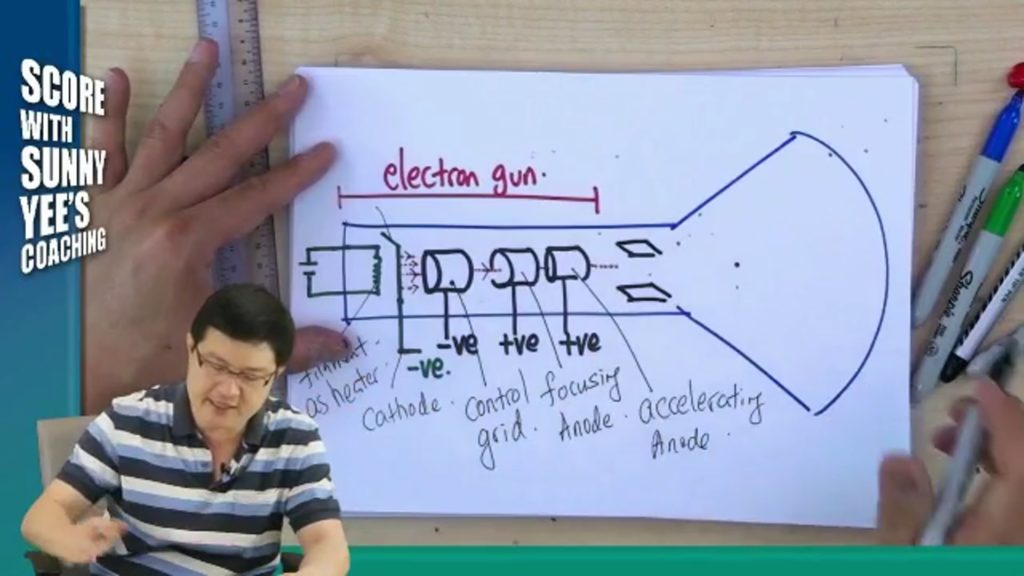 SCORE
WITH
SUNNY
YEE'S
COACHING
electron gun.
-ve
+ve
+ve
-ve.
as heater.
Cathode.
control
grid.
focusing
Anode.
accelerating
Anode.